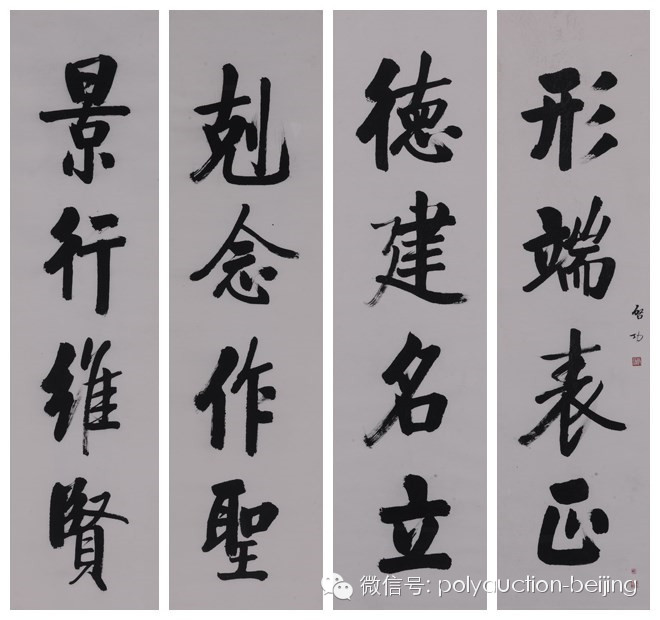 景行維賢
剋念作聖
德建名立
形端表正
启功
微信号: polyauction-beijing